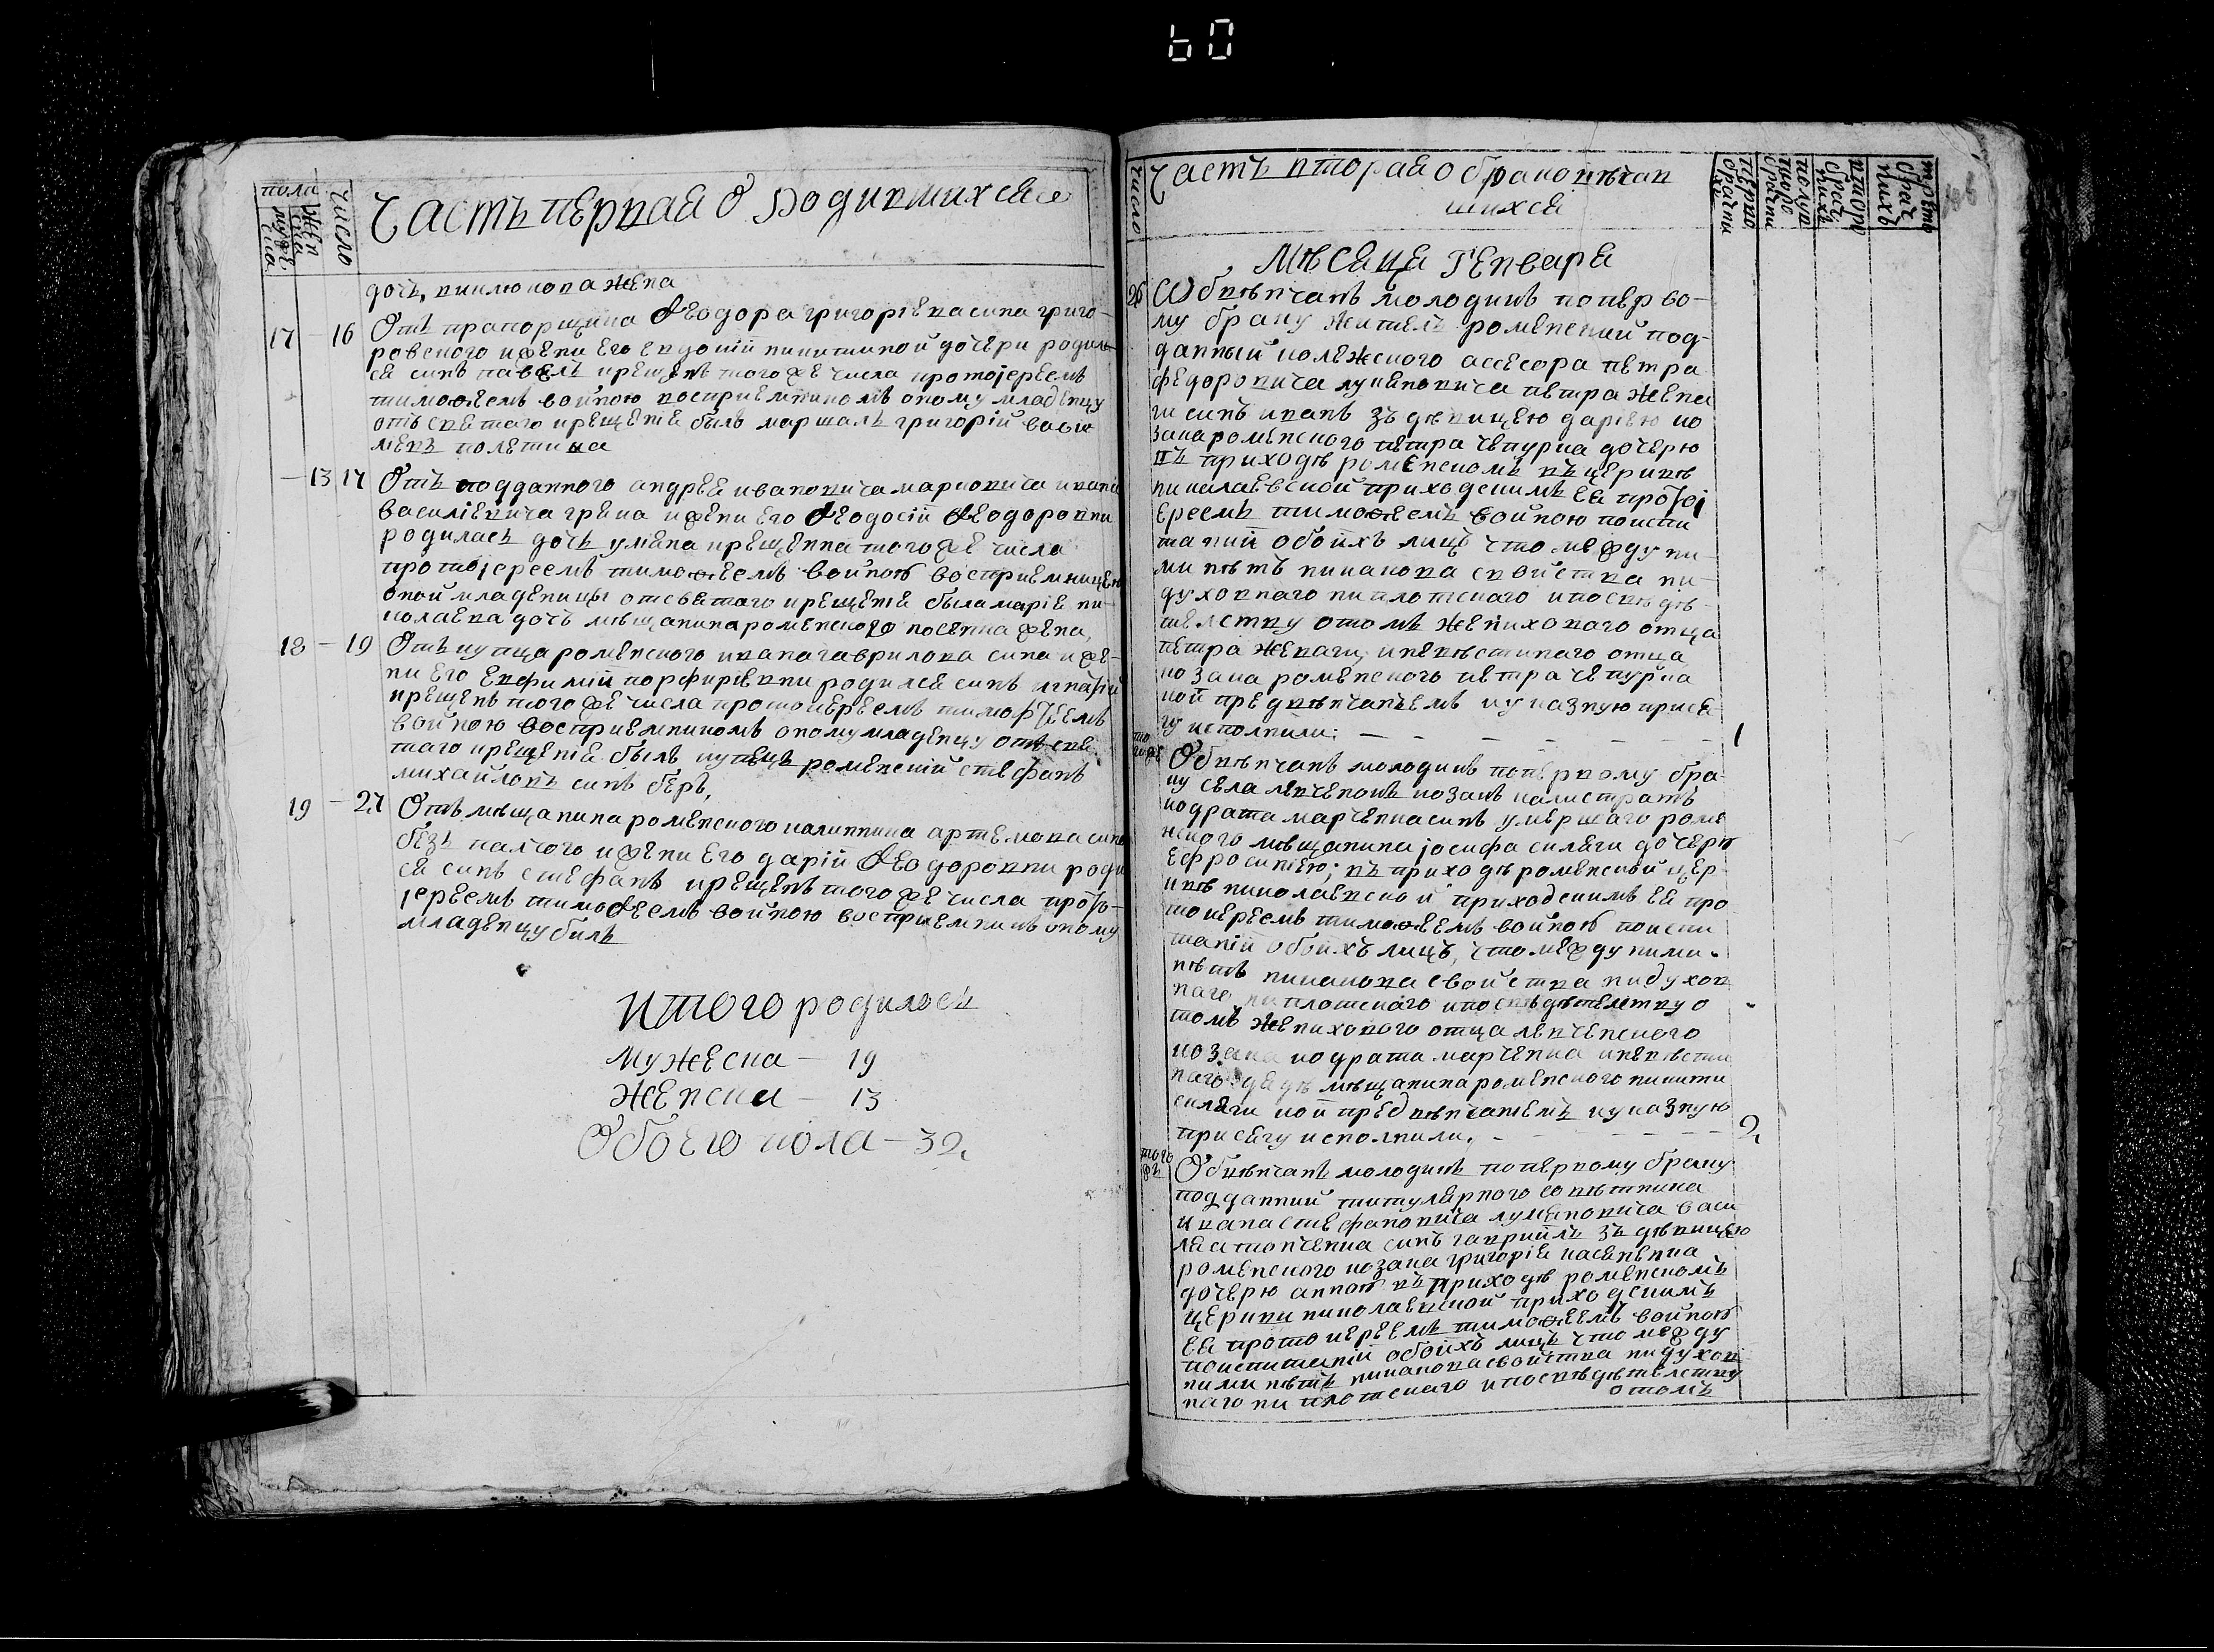 60
пола
мужеска
женска
число
Часть первая о родившихся
дочь, жена
17 — 16 Отъ прапорщика Ѳеодора григоріева сина григо-
ровского и жени его евдокіи никитиной дочери родил-
ся синъ павелъ крещенъ того же числа протоіереемъ
тимоѳеемъ войною восприемникомъ оному младенцу
отъ святаго крещенія былъ маршалъ григорій васи
левъ полетика
— 13 17 Отъ подданного андрея ивановича марковича ивана
василіевича грека и жени его Ѳеодосіи Ѳеодоровни
родилась дочь уляна крещенна того же числа
протоіереемъ тимоѳеемъ войною восприемницею
оной младеници отъ святаго крещенія была марія ни-
колаева дочь мѣщанина роменского жена,
18 — 19 Отъ купца роменского ивана гаврилова сина и же-
ни его евфиміи порфиріевни родился синъ игнатій
крещенъ того же числа протоиереемъ тимофтеемъ
войною восприемникомъ оному младенцу отъ свя
таго крещенія былъ купецъ роменскій стефанъ
михайловъ синъ беръ,
19 — 27 Отъ мѣщанина роменского калинника артемова сина
безъ палчого и жени его даріи Ѳеодоровни роди
ся синъ стефанъ крещенъ того же числа прото-
іереемъ тимоѳеемъ войною восприемникъ оному
младенцу билъ
Итого родилось
Мужеска — 19
Женска — 13
Обоего пола — 32,
число
Часть вторая о браковѣнчав
шихся
первобрачни
Мѣсяца Генваря
26 Ѡбвѣнчанъ молодикъ поперво-
му браку житель роменскій под-
данный колежского ассесора петра
федоровича лукяновича петра жеваги
синъ иванъ зъ дѣвицею даріею ко
зака роменского петра чепурка дочерю
въ приходѣ роменскомъ въ церквѣ
николаевской приходскимъ ея протоі
ереемъ тимоѳеемъ войною по испи
таніи обоихъ лицъ что между ни-
ми нѣтъ никакова свойства ни
духовнаго ни плотскаго и по свѣдѣ-
телству отомъ жениховаго отца
петра жеваги, и невѣстинаго отца
козака роменского петра чепурка
кои предвѣнчаніемъ и указную прися
гу исполнили: — — — — — — 1
того же Обвѣнчанъ молодикъ попервому бра-
ку села левченокъ козакъ калистратъ
кодрата марченка синъ умершаго роме
нского мѣщанина іосифа силяги дочерю
ефросиніею; въ приходѣ роменской цер-
квѣ николаевской приходскимъ ея про
тоиереемъ тимоѳеемъ войною по испи
таніи обоихъ лицъ, что между ними
нѣтъ никакова свойства ни духов
наго ни плотскаго и по свѣдѣтелству о
томъ жениховаго отца левченского
козака кодрата марченка и невѣсти
наго дядѣ мѣщанина роменского никити
силяги кои предвѣнчаніемъ и указную
присягу исполнили. — — — — — 2,
того же Обвѣнчанъ молодикъ попервому браку
подданний титулярного совѣтника
ивана стефановича лукяновича васи
ля синъ гавриилъ зъ дѣвицею
роменского козака григорія
дочерю анною въ приходѣ роменскомъ
церкви николаевской приходскимъ
ея протоиереемъ тимоѳеемъ войною
по испитаніи обоихъ лицъ что между
ними нѣтъ никакова свойства ни духов
наго ни плотскаго и по свѣдѣтелству
отомъ